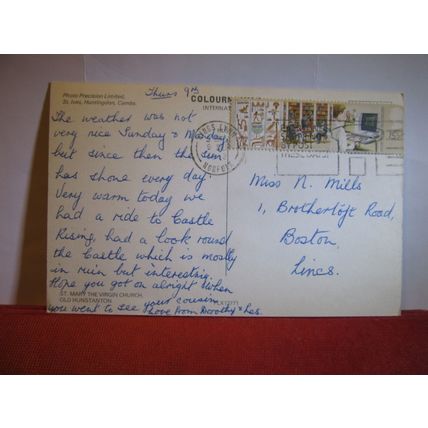 Photo Precision Limited.
St. Ives, Huntingdon, Cambs.
COLOUR
INTERNAT
Thurs 9th
The weather was not
very nice Sunday & Monday
but since then the sun
has shone every day
Very warm today we
had a ride to Castle
Rising, had a look round
the Castle which is mostly
in ruin but interesting.
Hope you got on alright when
ST. MARY THE VIRGIN CHURCH,
OLD HUNSTANTON
you went to see your cousin
Love from Dorothy & Les.
KINGS LYNN
NORFOLK
Miss N. Mills
1, Brothertoft Road,
Boston,
Lincs.